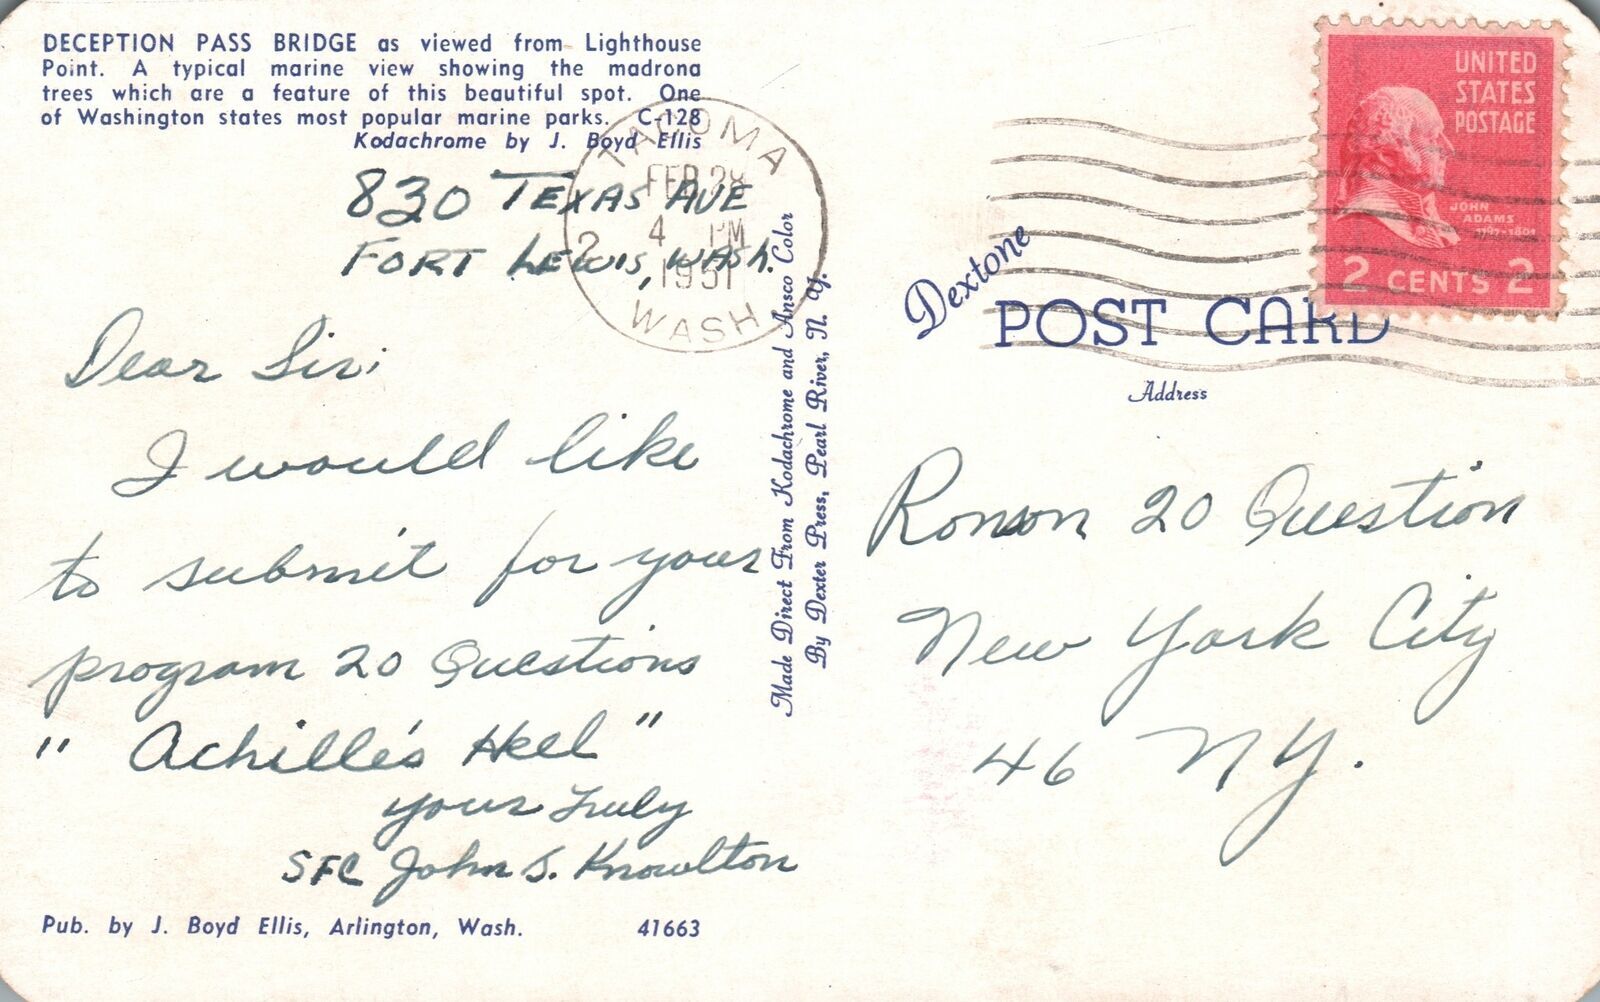 DECEPTION PASS BRIDGE as viewed from Lighthouse
Point. A typical marine view showing the madrona
trees which are a feature of this beautiful spot. One
of Washington states most popular marine parks. C-128
Kodachrome by J. Boyd Ellis
830 TEXAS AVE
FORT LEWIS, WASH.
TACOMA
FEB 28
4 PM
1951
2
WASH
Dear Sir:
I would like
to submit for your
program 20 Questions
" Achille's Heel "
yours Truly
SFC John S. Knowlton
Pub. by J. Boyd Ellis, Arlington, Wash. 41663
Made Direct From Kodachrome and Ansco Color
By Dexter Press, Pearl River, N. Y.
UNITED
STATES
POSTAGE
JOHN
ADAMS
1797-1801
2 CENTS 2
Dextone
POST CARD
Address
Ronson 20 Question
New York City
46 NY.